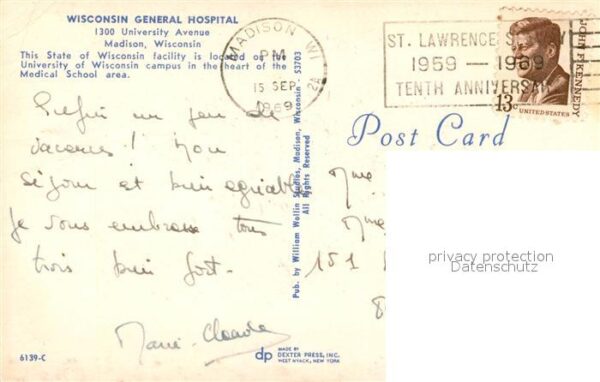 WISCONSIN GENERAL HOSPITAL
1300 University Avenue
Madison, Wisconsin
This State of Wisconsin facility is located on the
University of Wisconsin campus in the heart of the
Medical School area.
MADISON WI
PM
15 SEP
1969
ST. LAWRENCE S Y
1959 — 1969
TENTH ANNIVERSAR
JOHN F. KENNEDY
13c
UNITED STATES
Post Card
Pub. by William Wollin Studios, Madison, Wisconsin - S3703
All Rights Reserved
Enfin un peu de
vacances ! Mon
séjour est bien agréable
Je vous embrasse tous
trois bien fort.
Marie-Claude
Mme
Mme
151
privacy protection
Datenschutz
6139-C
dp
MADE BY
DEXTER PRESS, INC.
WEST NYACK, NEW YORK